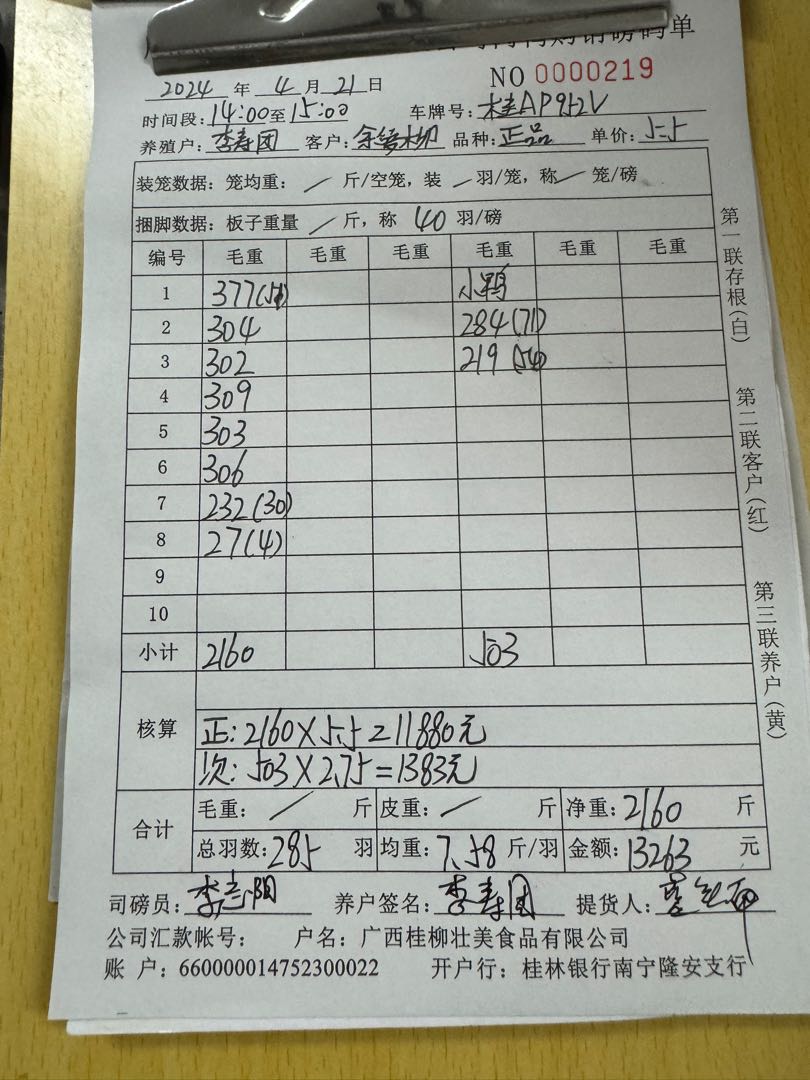 购销磅码单
NO 0000219
2024 年 4 月 21 日
时间段: 14:00至15:00 车牌号: 桂AP952V
养殖户: 李寿团 客户: 品种: 正品 单价: 5.5
装笼数据: 笼均重: / 斤/空笼, 装 / 羽/笼, 称 / 笼/磅
捆脚数据: 板子重量 / 斤, 称 40 羽/磅
编号 毛重 毛重 毛重 毛重 毛重 毛重
1 377(51) 小鸭
2 304 284(71)
3 302 219(54)
4 309
5 303
6 306
7 232(30)
8 27(4)
9
10
小计 2160 503
核算
正: 2160×5.5=11880元
次: 503×2.75=1383元
合计
毛重: / 斤 皮重: / 斤 净重: 2160 斤
总羽数: 285 羽 均重: 7.58 斤/羽 金额: 13263 元
司磅员: 李志阳 养户签名: 李寿团 提货人:
公司汇款帐号: 户名: 广西桂柳壮美食品有限公司
账 户: 660000014752300022 开户行: 桂林银行南宁隆安支行
第一联存根(白)
第二联客户(红)
第三联养户(黄)